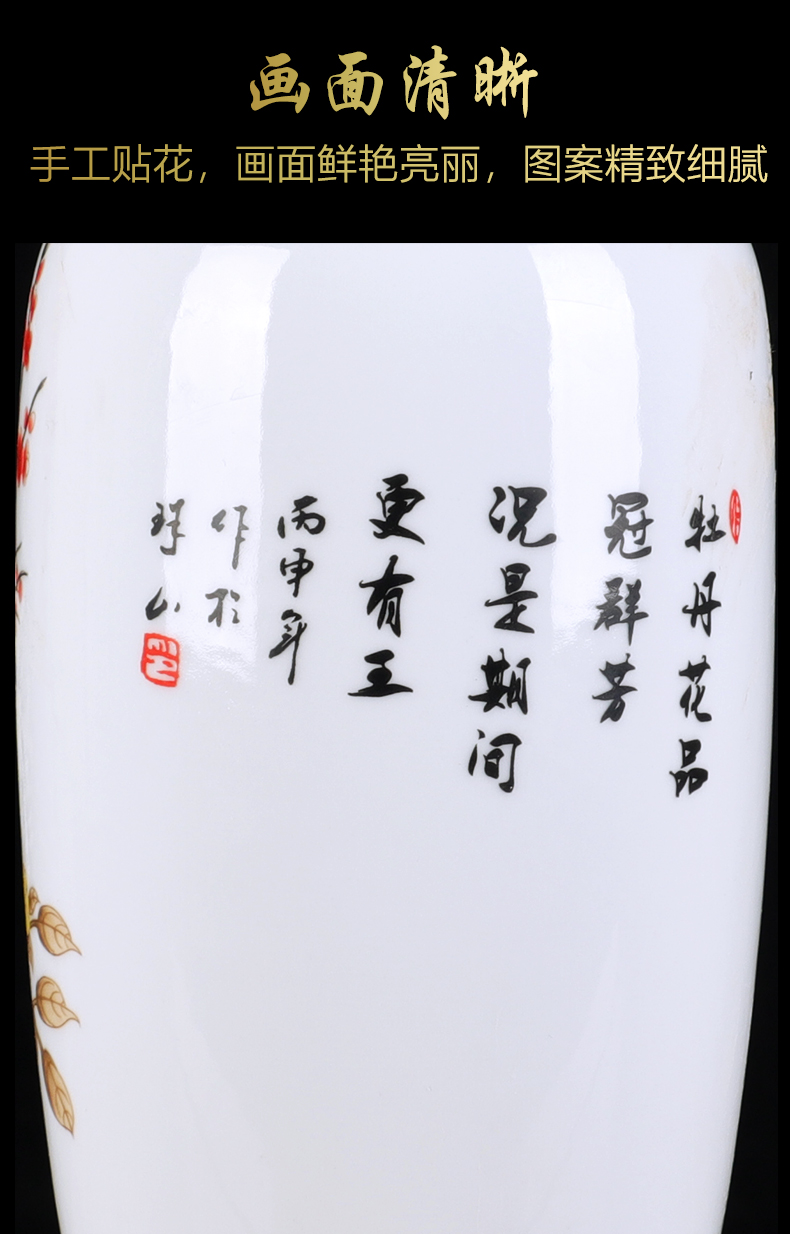 画面清晰
手工贴花，画面鲜艳亮丽，图案精致细腻
牡丹花品
冠群芳
况是期间
更有王
丙申年
作于
珠山